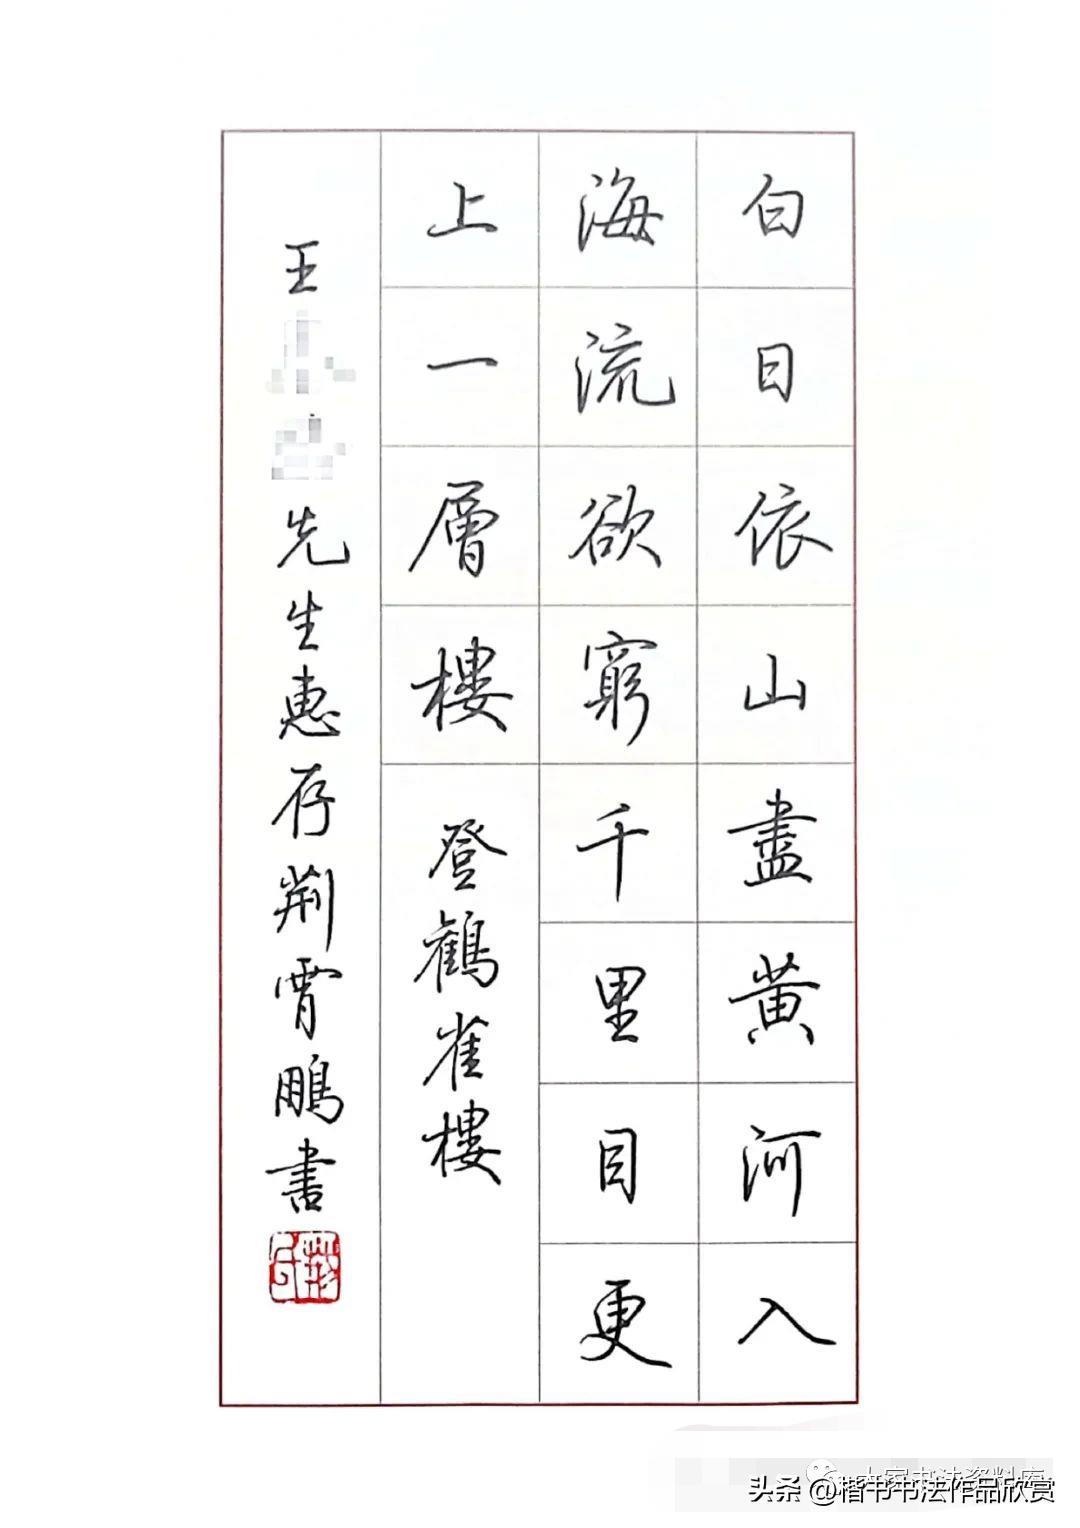 白日依山盡黃河入
海流欲窮千里目更
上一層樓
登鸛雀樓
王
先生惠存荊霄鵬書
大家书法资料库
头条 @楷书书法作品欣赏